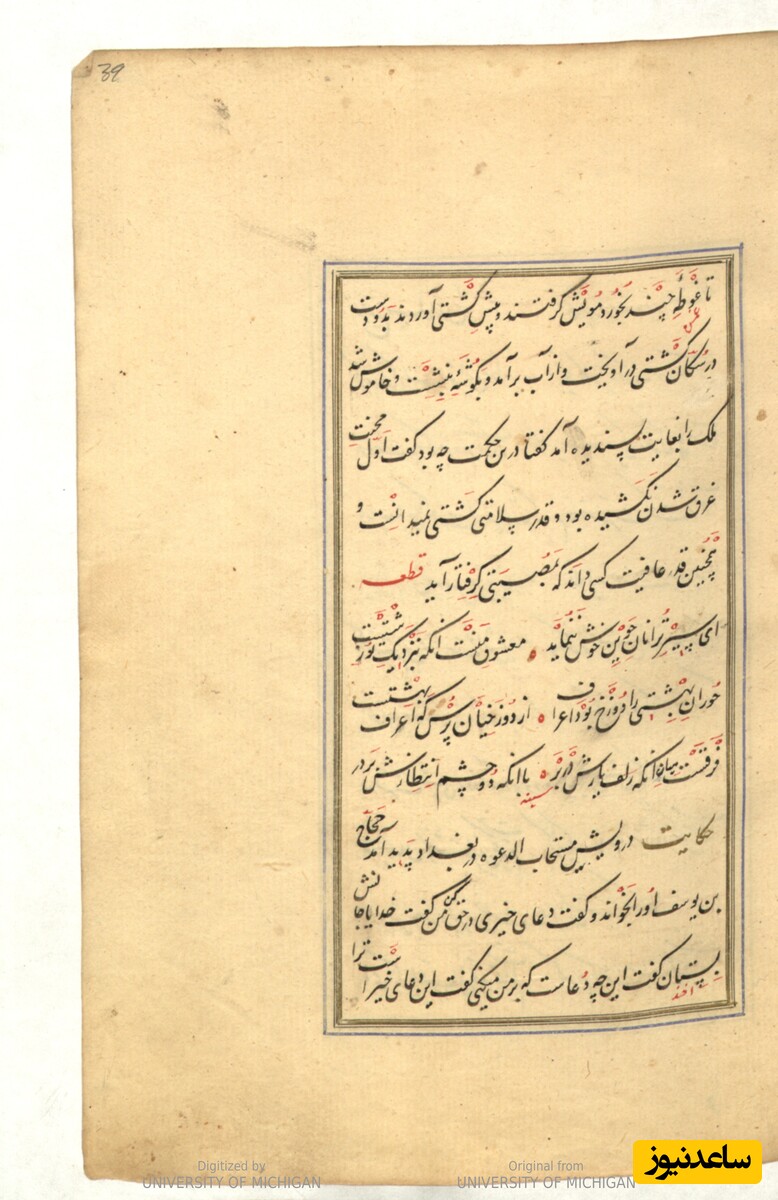 39
تا غوطهٔ چند بخورد مویش گرفتند و پیش کشتی آوردند بدو دست
در سکان کشتی در آویخت و از آب برآمد و بگوشهٔ بنشست و خاموش شد
ملک را بغایت پسندیده آمد گفتا درین حکمت چه بود گفت اول محنت
غرق شدن نکشیده بود و قدر سلامتی کشتی نمیدانست و
همچنین قدر عافیت کسی داند که بمصیبتی گرفتار آید قطعه
ای سیر ترا نان جوین خوش ننماید معشوق منست آنکه بنزدیک تو زشتست
حوران بهشتی را دوزخ بود اعراف از دوزخیان پرس که اعراف بهشتست
فرقست میان آنکه زلف یارش در بر با آنکه دو چشم انتظارش بر در
حکایت درویش مستجاب الدعوه در بغداد پدید آمد حجاج
بن یوسف او را بخواند و گفت دعای خیری در حق من کن گفت خدایا جانش
بستان گفت این چه دعاست که بر من میکنی گفت این دعای خیر است ترا
ساعدنیوز
Digitized by
UNIVERSITY OF MICHIGAN
Original from
UNIVERSITY OF MICHIGAN